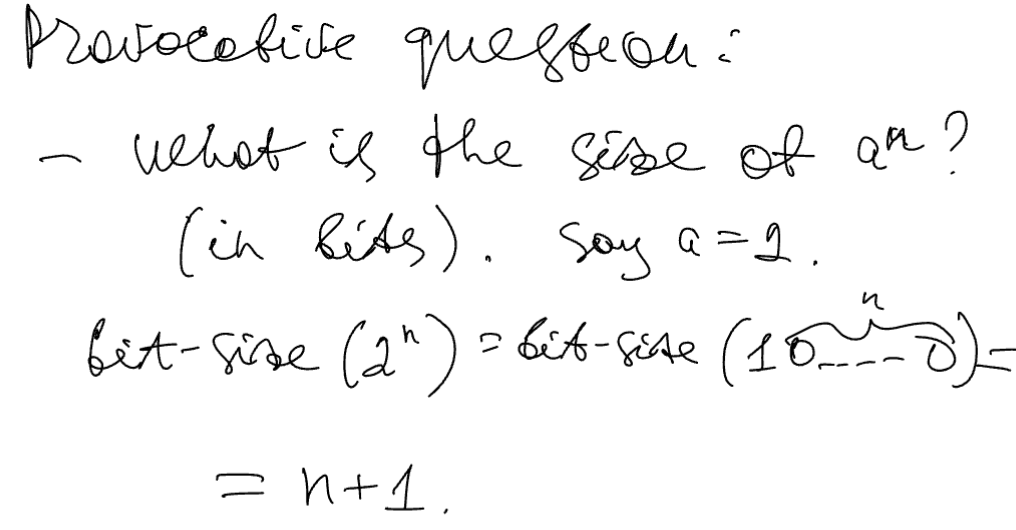 Provocative question:
- what is the size of aⁿ?
(in bits). Say a=2.
bit-size (2ⁿ) = bit-size (10----0) =
n
= n+1.